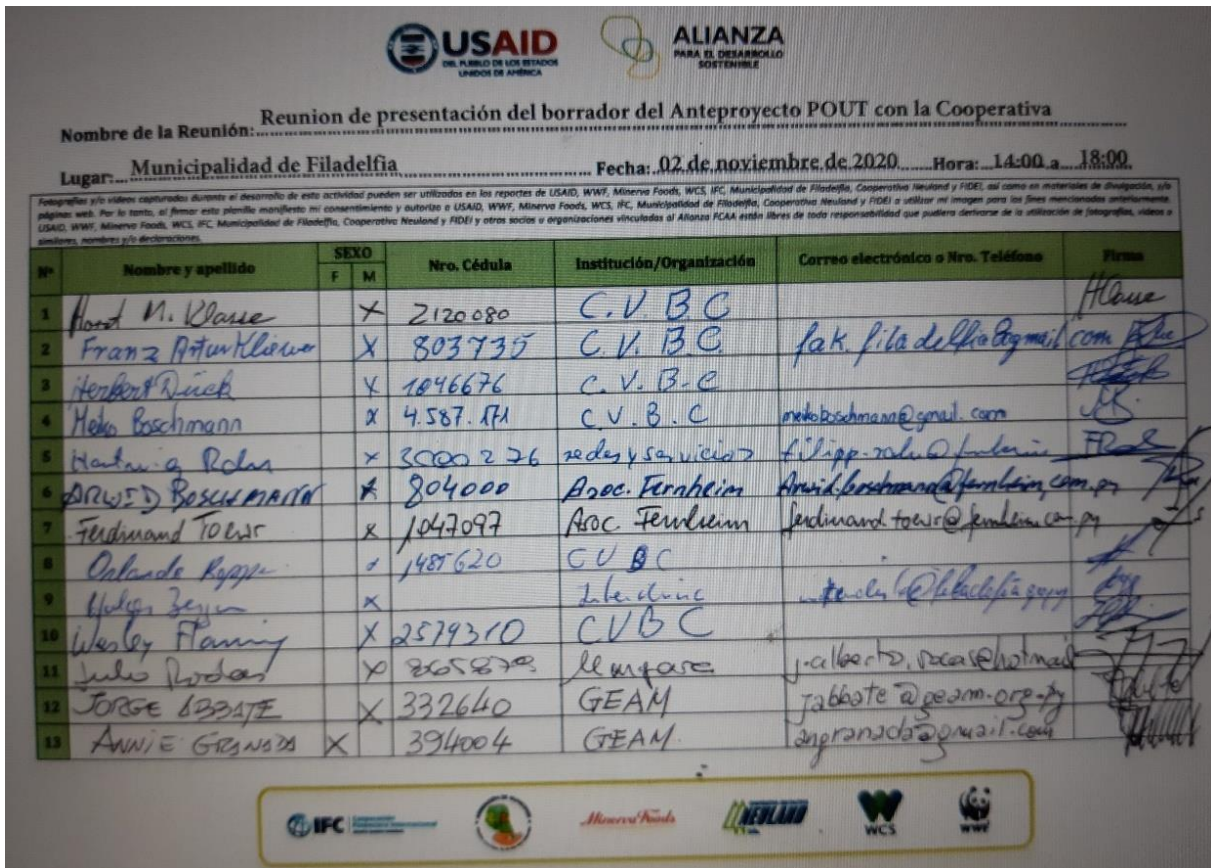 USAID
DEL PUEBLO DE LOS ESTADOS
UNIDOS DE AMÉRICA
ALIANZA
PARA EL DESARROLLO
SOSTENIBLE
Nombre de la Reunión: Reunion de presentación del borrador del Anteproyecto POUT con la Cooperativa
Lugar: Municipalidad de Filadelfia Fecha: 02 de noviembre de 2020 Hora: 14:00 a 18:00
Fotografías y/o videos capturados durante el desarrollo de esta actividad pueden ser utilizados en los reportes de USAID, WWF, Minerva Foods, WCS, IFC, Municipalidad de Filadelfia, Cooperativa Neuland y FIDEI, así como en materiales de divulgación, y/o
páginas web. Por lo tanto, al firmar esta planilla manifiesto mi consentimiento y autorizo a USAID, WWF, Minerva Foods, WCS, IFC, Municipalidad de Filadelfia, Cooperativa Neuland y FIDEI a utilizar mi imagen para los fines mencionados anteriormente.
USAID, WWF, Minerva Foods, WCS, IFC, Municipalidad de Filadelfia, Cooperativa Neuland y FIDEI y otros socios u organizaciones vinculadas al Alianza PCAA están libres de toda responsabilidad que pudiera derivarse de la utilización de fotografías, videos o
similares, nombres y/o declaraciones.
Nº Nombre y apellido SEXO F M Nro. Cédula Institución/Organización Correo electrónico o Nro. Teléfono Firma
1 M. X 2120080 C.V.B.C
2 Franz Artur Kliewer X 803735 C.V.B.C. fak.filadelfia@gmail.com
3 Herbert Dück X 1046676 C.V.B.C
4 Heko Boschmann x 4.587.171 C.V.B.C mekoboschmann@gmail.com
5 x 3000276 redes y servicios
6 ARWID BOSCHMANN x 804000 Asoc. Fernheim Arwid.boschmann@fernheim.com.py
7 Ferdinand Toews x 1047097 Asoc. Fernheim ferdinand.toews@fernheim.com.py
8 Orlando 1485620 CVBC
9 x
10 Wesley X 2579310 CVBC
11 Julio X
12 JORGE ABBATE X 332640 GEAM jabbate@geam.org.py
13 ANNIE GRANADA X 394004 GEAM. angranada@gmail.com
IFC Corporación Financiera Internacional
Minerva Foods
NEULAND
WCS
WWF